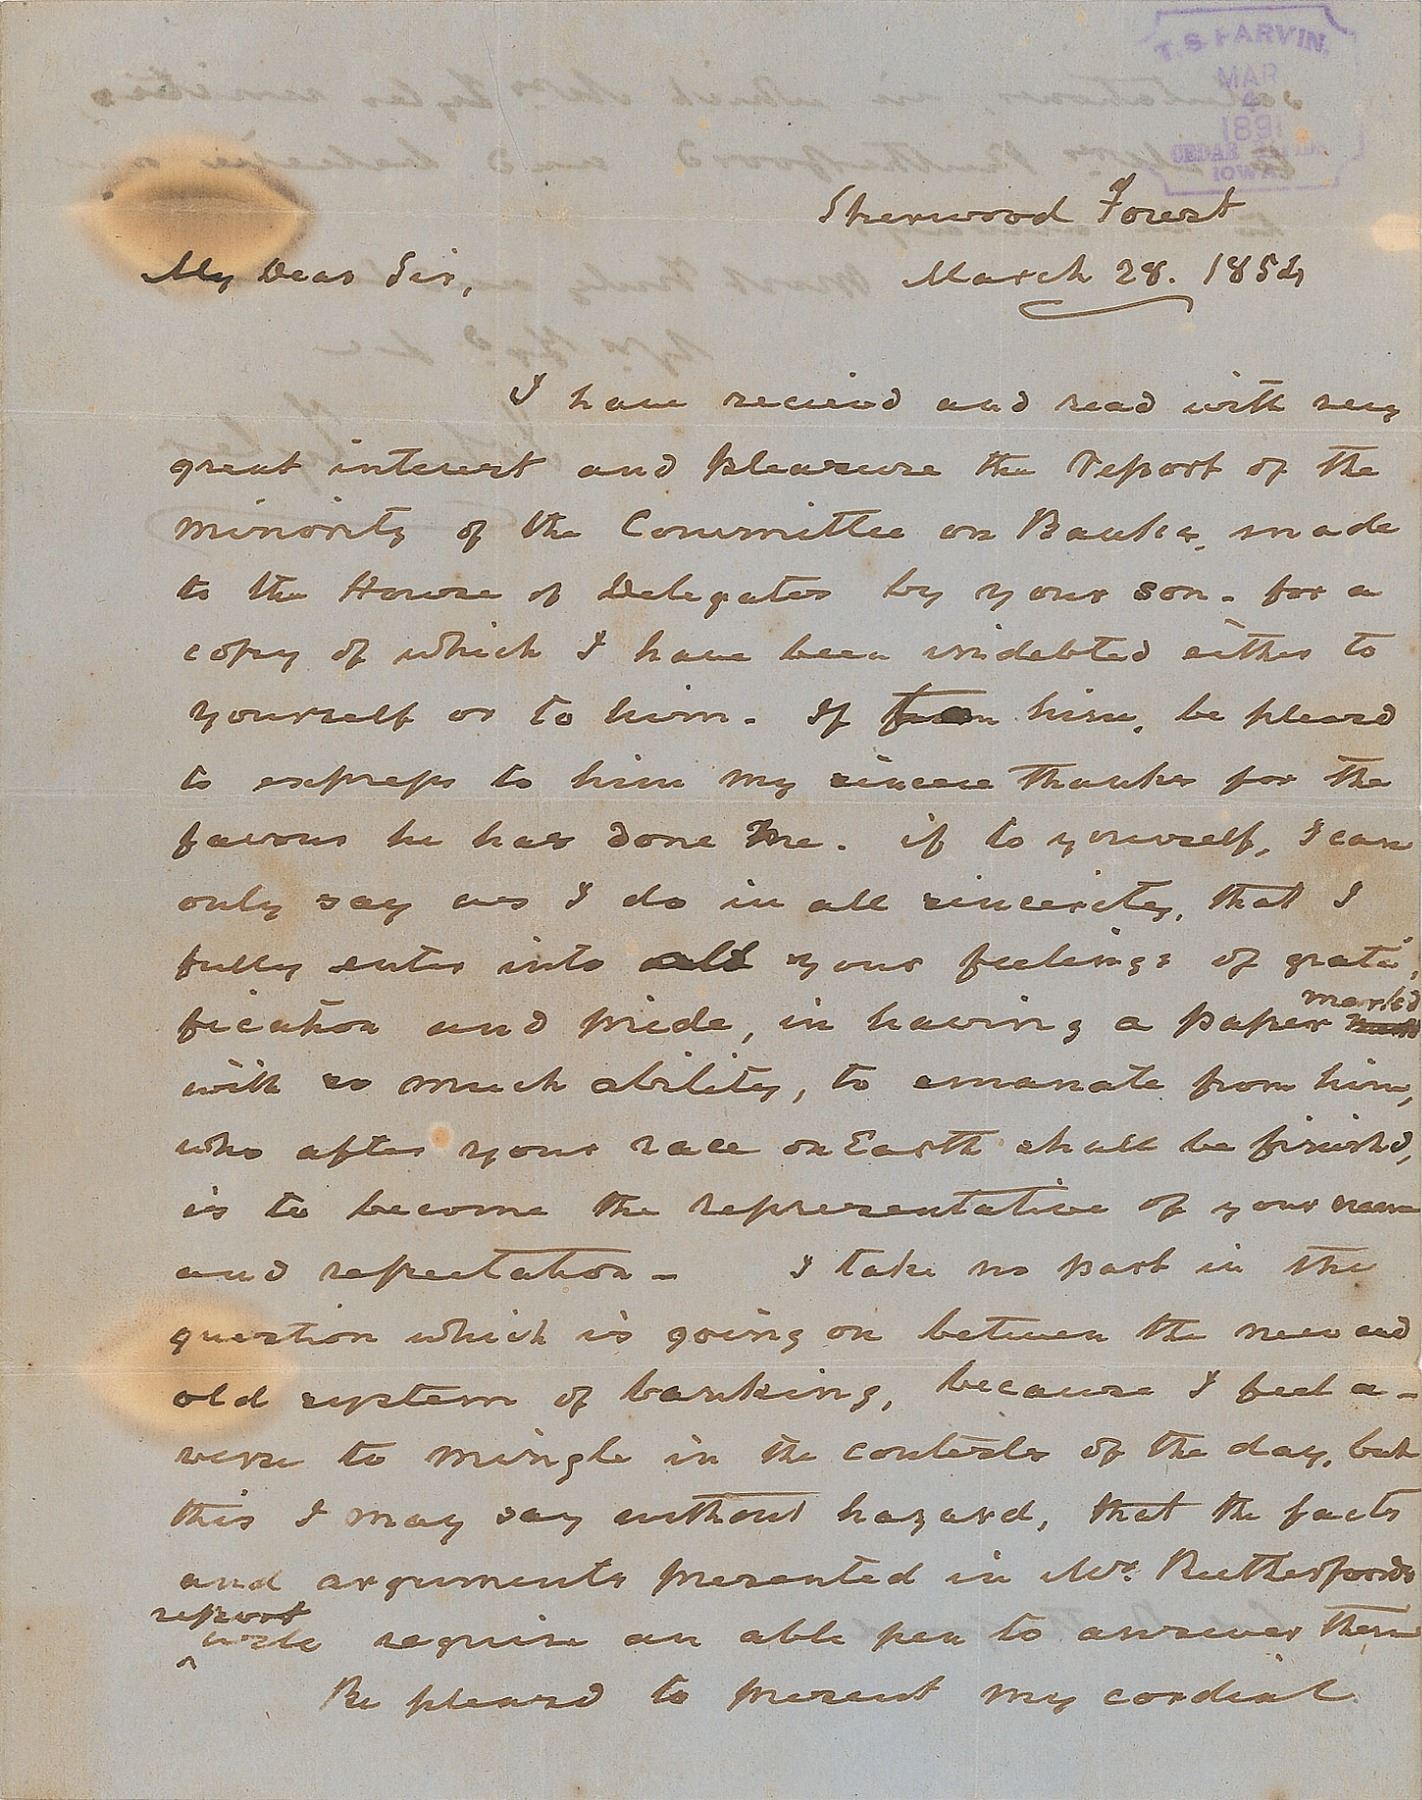 T. S. PARVIN,
MAR
4
1891
CEDAR RAPIDS
IOWA
Sherwood Forest
My Dear Sir,
March 28. 1854
I have recievd and read with very
great interest and pleasure the report of the
minority of the Committee on Banks, made
to the House of Delegates by your son. for a
copy of which I have been indebted either to
yourself or to him. If him, be pleasd
to express to him my sincere thanks for the
favour he has done me. if to yourself, I can
only say as I do in all sincerity, that I
fully enter into all your feelings of grati
fication and pride, in having a paper marked
with so much ability, to emanate from him,
who after your race on Earth shall be finishd,
is to become the representative of your name
and reputation - I take no part in the
question which is going on between the new and
old system of banking, because I feel a-
verse to mingle in the contests of the day, but
this I may say without hazard, that the facts
and arguments presented in Mr. Rutherfoords
report will require an able pen to answer them
Be pleasd to present my cordial